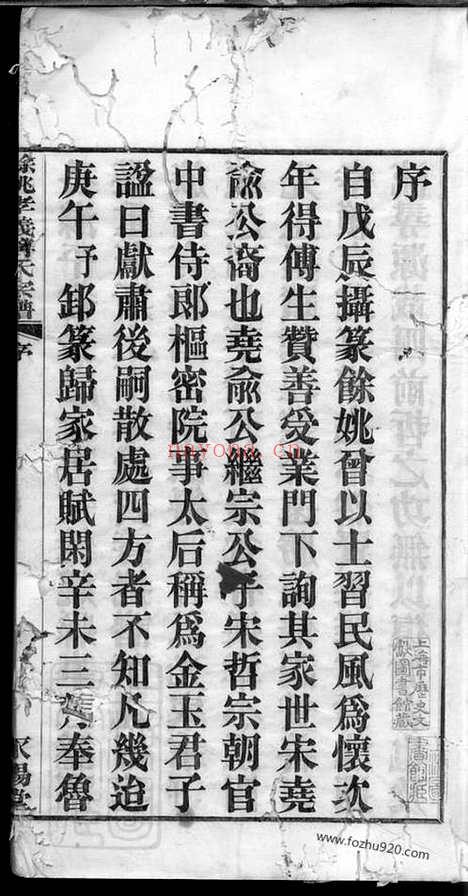 序
自戊辰攝篆餘姚曾以士習民風爲懷次
年得傅生贊善受業門下詢其家世宋堯
俞公裔也堯俞公繼宗公子宋哲宗朝官
中書侍郎樞密院事太后稱爲金玉君子
諡曰獻肅後嗣散處四方者不知凡幾迨
庚午予卸篆歸家居賦閑辛未三月奉魯
序
上海市歷史文
獻圖書館藏
nayona.cn
www.fozhu920.com